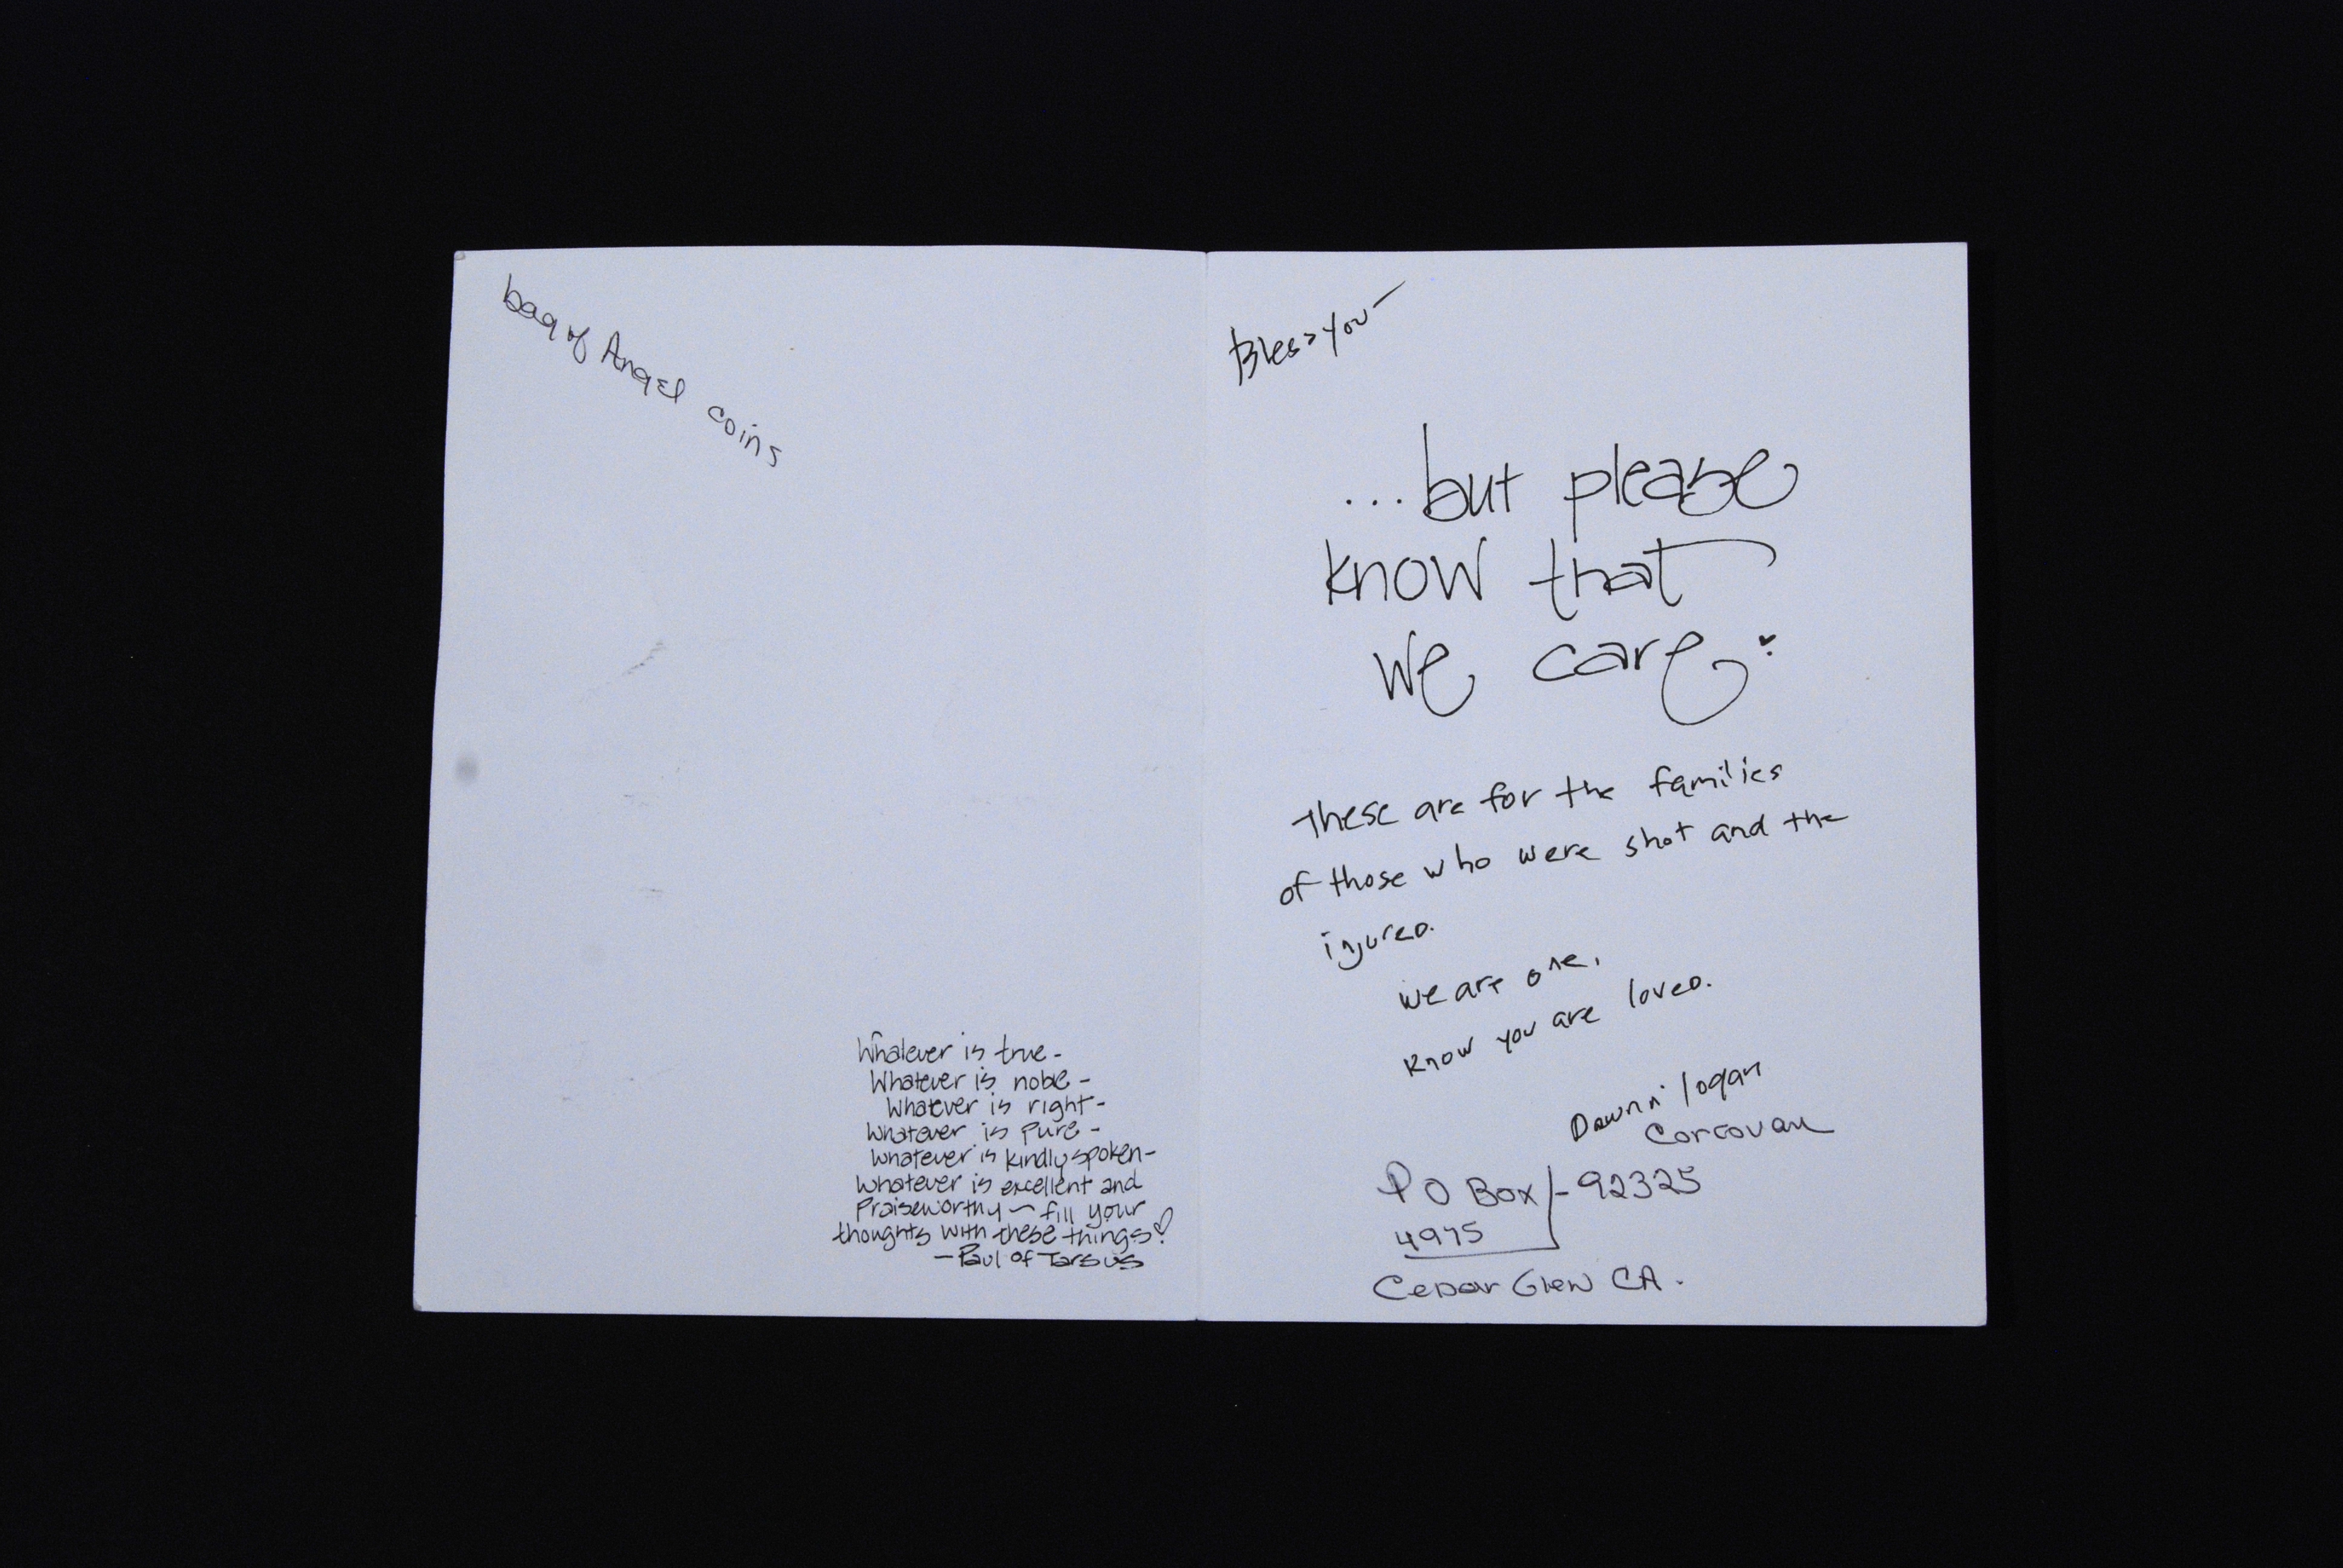 bag of Angel coins
Whatever is true-
Whatever is noble-
Whatever is right-
Whatever is pure-
Whatever is kindly spoken-
Whatever is excellent and
Praiseworthy – fill your
thoughts with these things!
- Paul of Tarsus
Bless you –
...but please
know that
we care
These are for the families
of those who were shot and the
injured.
We are one.
Know you are loved.
Dawn n' logan
PO Box - 92325
4975
Cedar Glen CA.